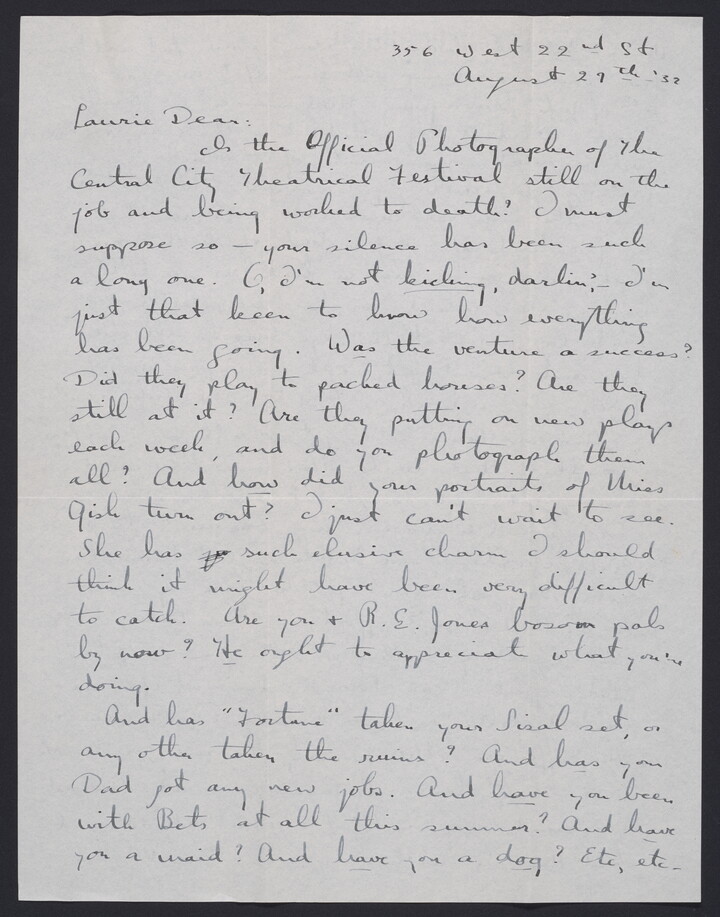 356 West 22nd St
August 29th '32
Laurie Dear:
Is the Official Photographer of the
Central City Theatrical Festival still on the
job and being worked to death? I must
suppose so — your silence has been such
a long one. O, I'm not kicking, darlin', — I'm
just that keen to know how everything
has been going. Was the venture a success?
Did they play to packed houses? Are they
still at it? Are they putting on new plays
each week, and do you photograph them
all? And how did your portraits of Miss
Gish turn out? I just can't wait to see.
She has such elusive charm I should
think it might have been very difficult
to catch. Are you + R.E. Jones bosom pals
by now? He ought to appreciate what you're
doing.
And has "Fortune" taken your Sisal set, or
any other taken the ruins? And has your
Dad got any new jobs. And have you been
with Bets at all this summer? And have
you a maid? And have you a dog? Etc, etc —